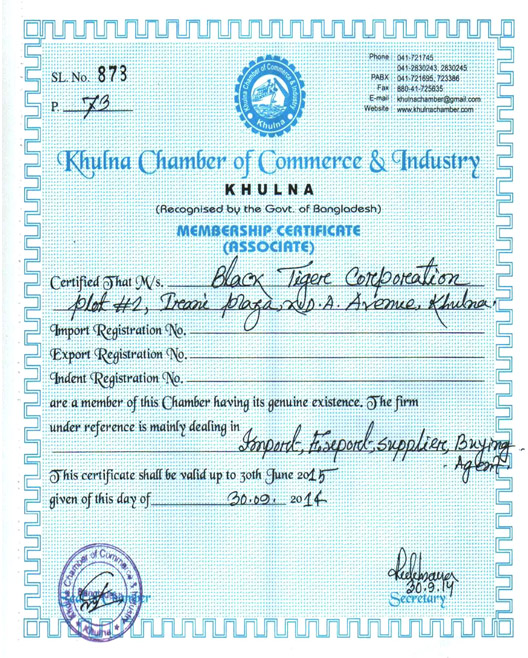 SL. No. 873
P. 73
Khulna Chamber of Commerce & Industry
Khulna
Phone 041-721745
041-2830243, 2830245
PABX 041-721695, 723386
Fax 880-41-725635
E-mail khulnachamber@gmail.com
Website www.khulnachamber.com
Khulna Chamber of Commerce & Industry
KHULNA
(Recognised by the Govt. of Bangladesh)
MEMBERSHIP CERTIFICATE
(ASSOCIATE)
Certified That M/s. Black Tigere Coreporeation
plot #2, Ireani plaza, K.D.A. Avenue, Khulna.
Import Registration No.
Export Registration No.
Indent Registration No.
are a member of this Chamber having its genuine existence. The firm
under reference is mainly dealing in
Import, Export, supplier, Buying
Agent.
This certificate shall be valid up to 30th June 2015
given of this day of 30.09. 2014
Khulna Chamber of Commerce & Industry
Bangladesh
Khulna
30.9.14
Secretary